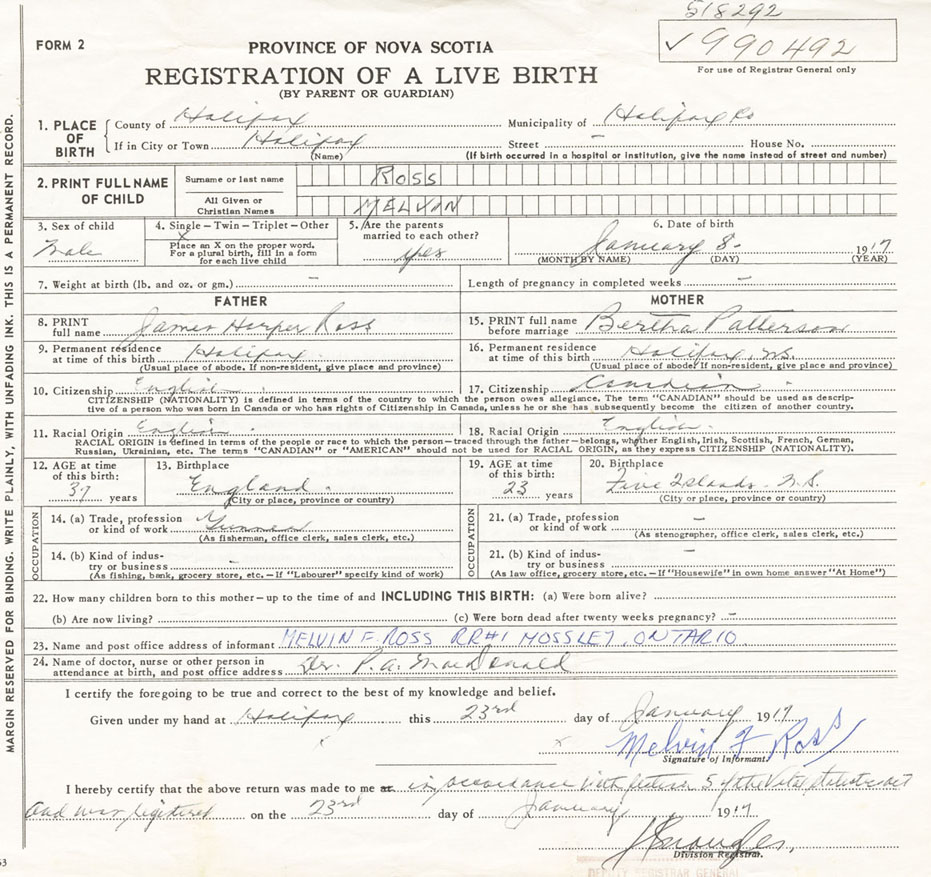 518292
FORM 2
PROVINCE OF NOVA SCOTIA
✓ 990492
REGISTRATION OF A LIVE BIRTH
For use of Registrar General only
(BY PARENT OR GUARDIAN)
1. PLACE OF BIRTH
County of Halifax Municipality of Halifax Co
If in City or Town Halifax Street – House No.
(Name) (If birth occurred in a hospital or institution, give the name instead of street and number)
2. PRINT FULL NAME OF CHILD
Surname or last name ROSS
All Given or Christian Names MELVIN
3. Sex of child Male
4. Single – Twin – Triplet – Other X
Place an X on the proper word.
For a plural birth, fill in a form
for each live child
5. Are the parents
married to each other?
yes
6. Date of birth
January 8 - 1917
(MONTH BY NAME) (DAY) (YEAR)
7. Weight at birth (lb. and oz. or gm.) – Length of pregnancy in completed weeks –
FATHER
MOTHER
8. PRINT
full name James Harper Ross
15. PRINT full name
before marriage Bertha Patterson
9. Permanent residence
at time of this birth Halifax
(Usual place of abode. If non-resident, give place and province)
16. Permanent residence
at time of this birth Halifax, N.S.
(Usual place of abode. If non-resident, give place and province)
10. Citizenship English
17. Citizenship Canadian
CITIZENSHIP (NATIONALITY) is defined in terms of the country to which the person owes allegiance. The term "CANADIAN" should be used as descrip-
tive of a person who was born in Canada or who has rights of Citizenship in Canada, unless he or she has subsequently become the citizen of another country.
11. Racial Origin English
18. Racial Origin English
RACIAL ORIGIN is defined in terms of the people or race to which the person—traced through the father—belongs, whether English, Irish, Scottish, French, German,
Russian, Ukrainian, etc. The terms "CANADIAN" or "AMERICAN" should not be used for RACIAL ORIGIN, as they express CITIZENSHIP (NATIONALITY).
12. AGE at time
of this birth:
37 years
13. Birthplace
England
(City or place, province or country)
19. AGE at time
of this birth:
23 years
20. Birthplace
Five Islands N.S.
(City or place, province or country)
OCCUPATION
14. (a) Trade, profession
or kind of work
(As fisherman, office clerk, sales clerk, etc.)
14. (b) Kind of indus-
try or business –
(As fishing, bank, grocery store, etc.—If "Labourer" specify kind of work)
OCCUPATION
21. (a) Trade, profession
or kind of work –
(As stenographer, office clerk, sales clerk, etc.)
21. (b) Kind of indus-
try or business –
(As law office, grocery store, etc.—If "Housewife" in own home answer "At Home")
22. How many children born to this mother—up to the time of and INCLUDING THIS BIRTH: (a) Were born alive? –
(b) Are now living? – (c) Were born dead after twenty weeks pregnancy? –
23. Name and post office address of informant MELVIN F. ROSS RR#1 MOSSLEY, ONTARIO
24. Name of doctor, nurse or other person in
attendance at birth, and post office address Dr. P. A. MacDonald
I certify the foregoing to be true and correct to the best of my knowledge and belief.
Given under my hand at Halifax this 23rd day of January 1917
Melvin F Ross
Signature of Informant.
I hereby certify that the above return was made to me at in accordance with section 5 of the Vital Statistics act
and was registered on the 23rd day of January 1917
Division Registrar.
DEPUTY REGISTRAR GENERAL
MARGIN RESERVED FOR BINDING. WRITE PLAINLY, WITH UNFADING INK. THIS IS A PERMANENT RECORD.
63